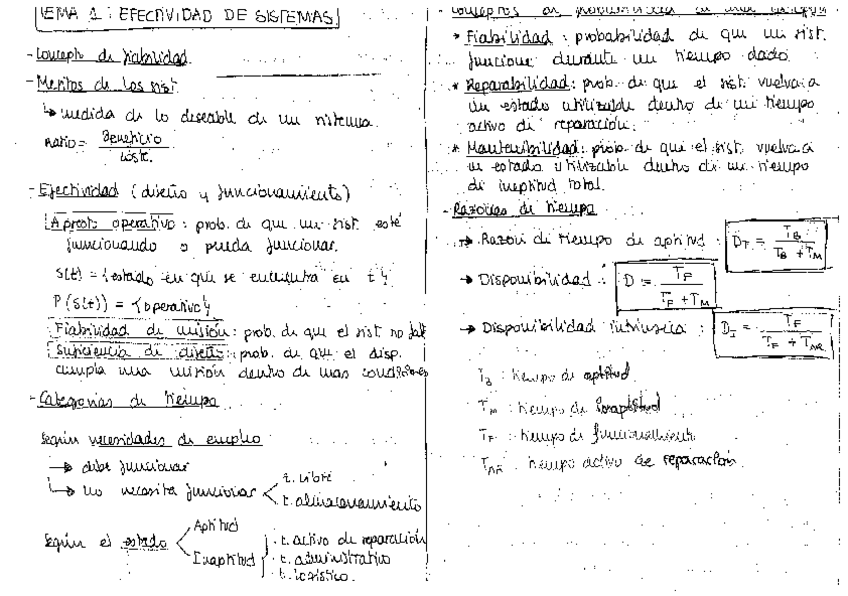 TEMA 1: EFECTIVIDAD DE SISTEMAS
- Concepto de fiabilidad.
- Meritos de los sist.
↳ medida de lo deseable de un sistema.
Ratio = Beneficio / Coste.
- Efectividad (diseño y funcionamiento)
Aprest. operativo: prob. de que un sist. esté
funcionando o pueda funcionar.
s(t) = {estado en que se encuentra en t}
P(s(t)) = {operativo}
Fiabilidad de misión: prob. de que el sist no falle
Suficiencia de diseño: prob. de que el disp.
cumpla una misión dentro de unas condiciones
- Categorías de tiempo
Según necesidades de empleo
→ debe funcionar
↳ no necesita funcionar < t. libre
t. almacenamiento
Según el estado < Aptitud
Inaptitud } · t. activo de reparación
· t. administrativo
· t. logístico.
- Conceptos de probabilística
* Fiabilidad: probabilidad de que un sist.
funcione durante un tiempo dado.
* Reparabilidad: prob. de que el sist. vuelva a
un estado utilizable dentro de un tiempo
activo de reparación.
* Mantenibilidad: prob. de que el sist. vuelva a
un estado utilizable dentro de un tiempo
de ineptitud total.
- Razones de tiempo
→ Razón de tiempo de aptitud: D_T = T_B / (T_B + T_M)
→ Disponibilidad: D = T_F / (T_F + T_M)
→ Disponibilidad intrínseca: D_I = T_F / (T_F + T_AR)
T_B: tiempo de aptitud
T_M: tiempo de inaptitud
T_F: tiempo de funcionamiento
T_AR: tiempo activo de reparación.